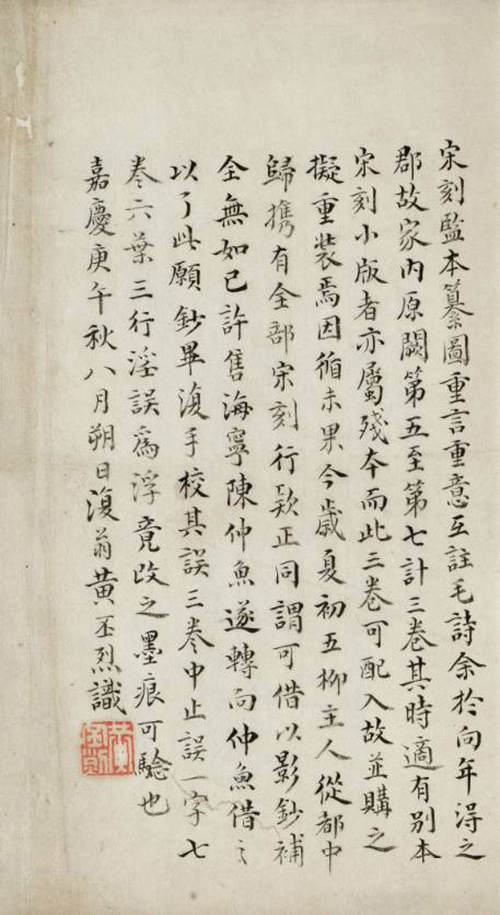 宋刻監本纂圖重言重意互註毛詩余於向年得之
郡故家內原闕第五至第七計三卷其時適有別本
宋刻小版者亦屬殘本而此三卷可配入故並購之
擬重裝焉因循未果今歲夏初五柳主人從都中
歸攜有全部宋刻行款正同謂可借以影鈔補
全無如已許售海寧陳仲魚遂轉向仲魚借之
以了此願鈔畢復手校其誤三卷中止誤一字七
卷六葉三行淫誤為浮竟改之墨痕可驗也
嘉慶庚午秋八月朔日復翁黃丕烈識